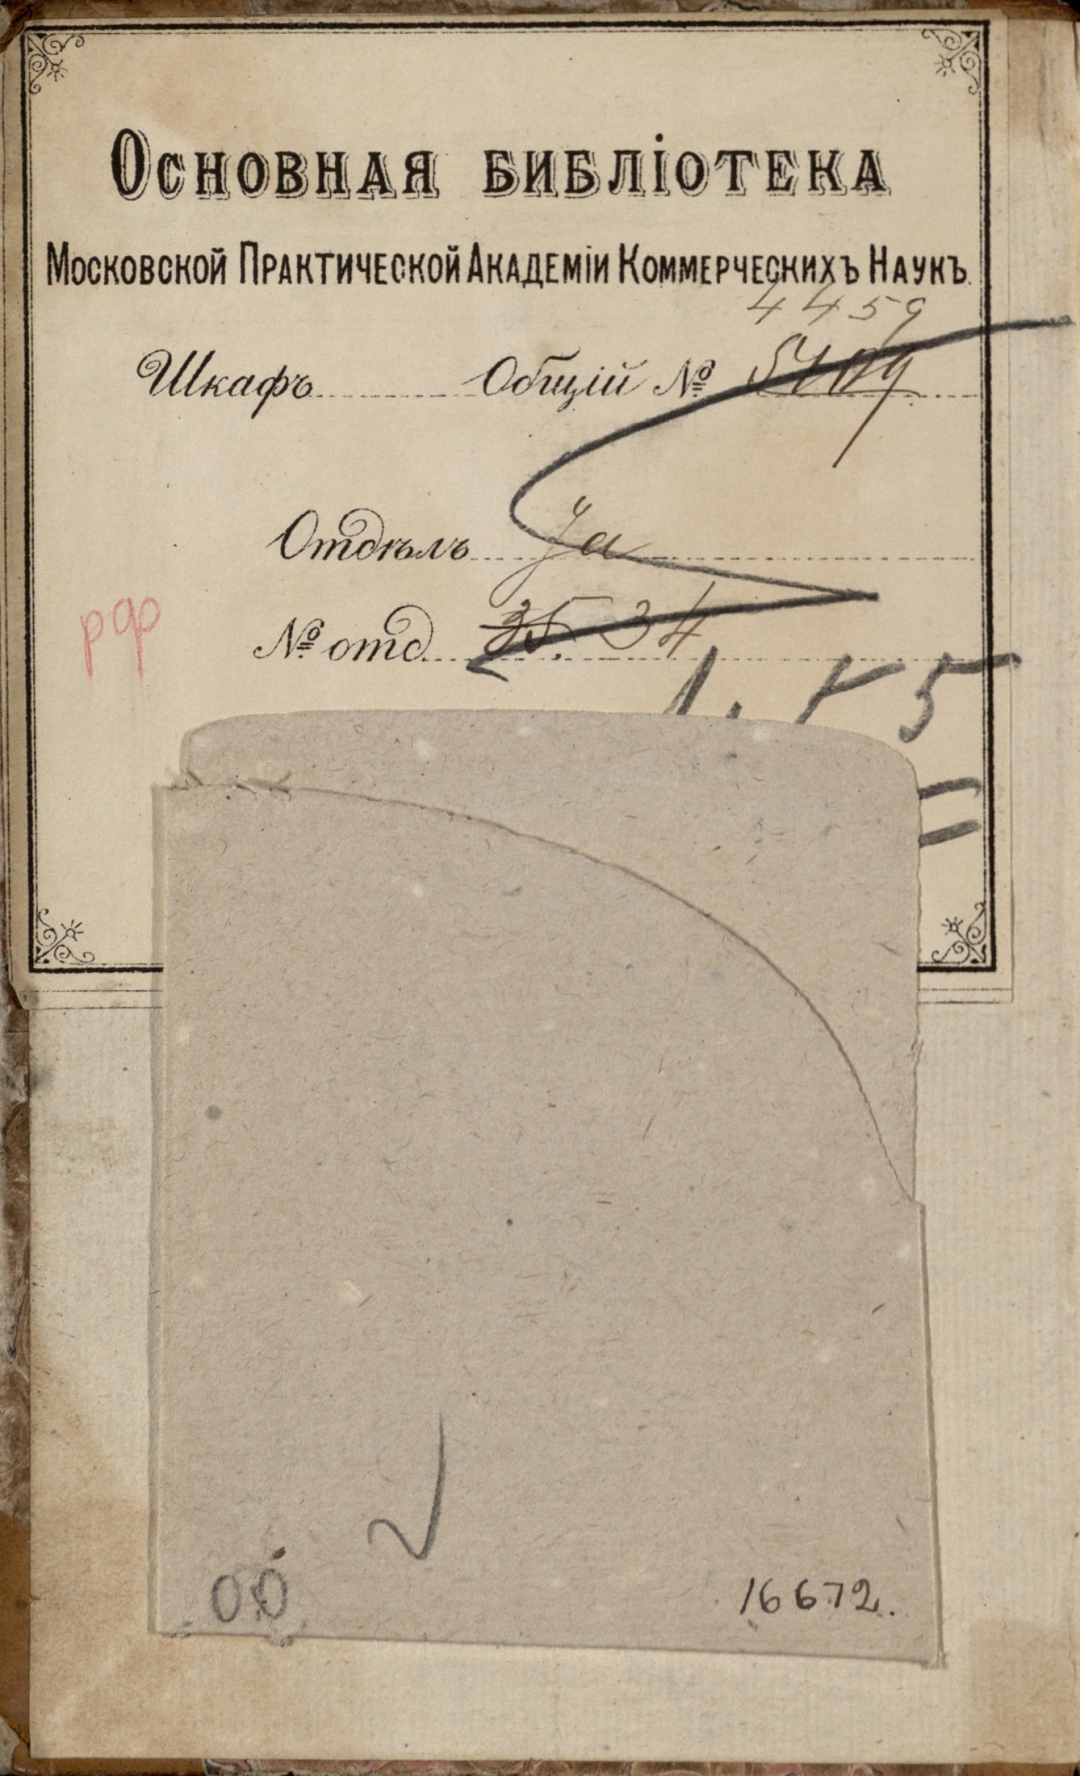 Основная библіотека
Московской Практической Академіи Коммерческихъ Наукъ.
4459
Шкафъ Общій №
Отдѣлъ Ja
№ отд. 35. 34
рф
16672.